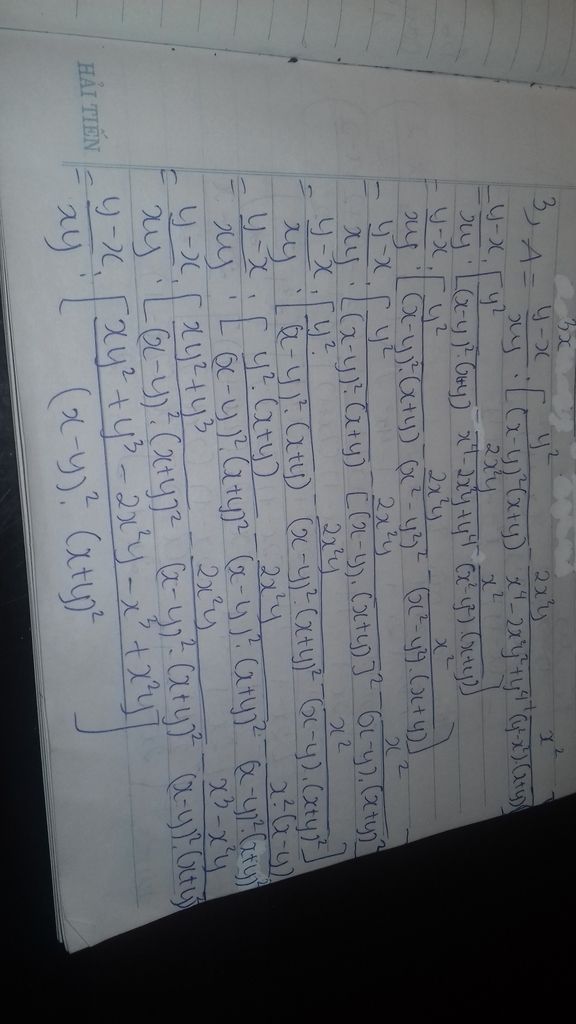 3x
3, A = \frac{y-x}{xy} : [\frac{y^2}{(x-y)^2.(x+y)} - \frac{2x^2y}{x^4-2x^2y^2+y^4} + \frac{x^2}{(y^2-x^2)(x+y)}]
= \frac{y-x}{xy} : [\frac{y^2}{(x-y)^2.(x+y)} - \frac{2x^2y}{x^4-2x^2y^2+y^4} - \frac{x^2}{(x^2-y^2)(x+y)}]
= \frac{y-x}{xy} : [\frac{y^2}{(x-y)^2.(x+y)} - \frac{2x^2y}{(x^2-y^2)^2} - \frac{x^2}{(x^2-y^2).(x+y)}]
= \frac{y-x}{xy} : [\frac{y^2}{(x-y)^2.(x+y)} - \frac{2x^2y}{[(x-y).(x+y)]^2} - \frac{x^2}{(x-y).(x+y)^2}
= \frac{y-x}{xy} : [\frac{y^2}{(x-y)^2.(x+y)} - \frac{2x^2y}{(x-y)^2.(x+y)^2} - \frac{x^2}{(x-y).(x+y)^2}]
= \frac{y-x}{xy} : [\frac{y^2.(x+y)}{(x-y)^2.(x+y)^2} - \frac{2x^2y}{(x-y)^2.(x+y)^2} - \frac{x^2(x-y)}{(x-y)^2.(x+y)^2}
= \frac{y-x}{xy} : [\frac{xy^2+y^3}{(x-y)^2.(x+y)^2} - \frac{2x^2y}{(x-y)^2.(x+y)^2} - \frac{x^3-x^2y}{(x-y)^2.(x+y)^2}
= \frac{y-x}{xy} : [\frac{xy^2+y^3-2x^2y-x^3+x^2y}{(x-y)^2.(x+y)^2}]
HẢI TIẾN